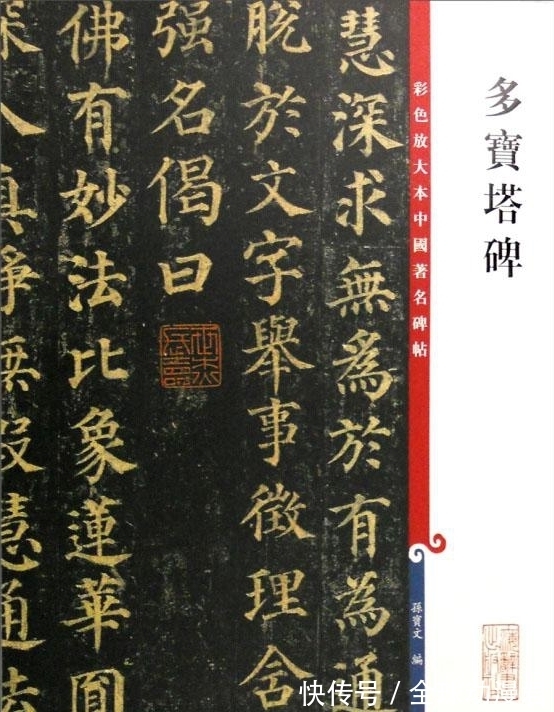 多寶塔碑
彩色放大本中國著名碑帖
孫寶文 編
慧深求無爲於有為通
脫於文字舉事徵理含
强名偈曰
佛有妙法比象蓮華圓
深入真淨無假慧通法
快传号 / 全